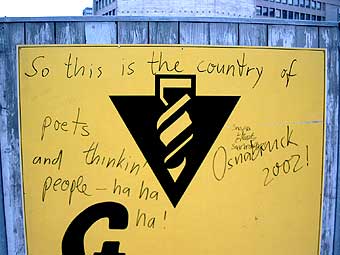 So this is the country of
poets
and thinkin'
people - ha ha
ha!
Osnabruck
2002!
G